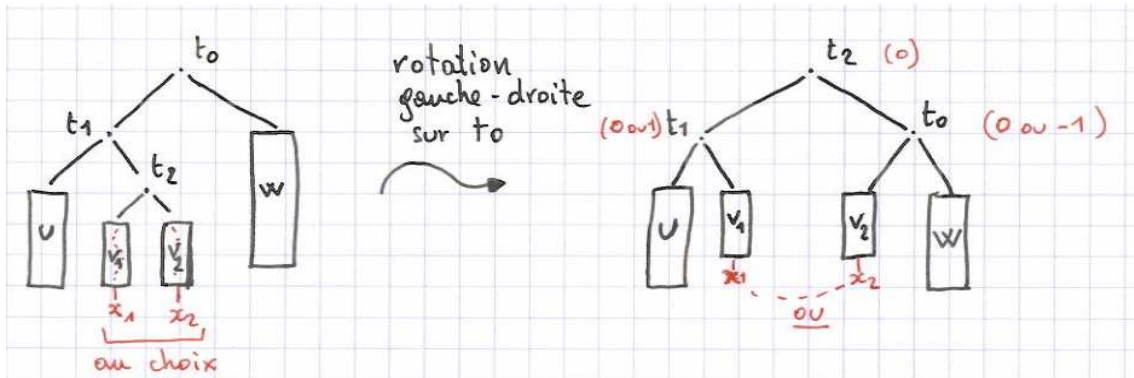 t₀
t₁
t₂
U
V₁
V₂
W
x₁
x₂
au choix
rotation
gauche-droite
sur t₀
t₂ (0)
(0 ou 1) t₁
t₀ (0 ou -1)
U
V₁
V₂
W
x₁
x₂
ou